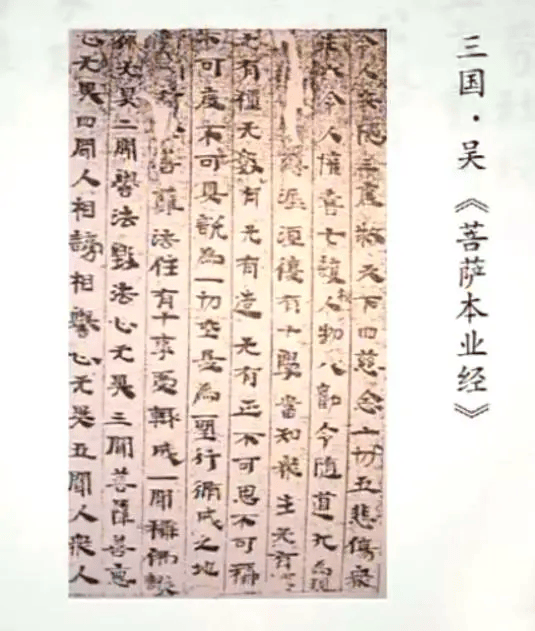 三国·吴《菩萨本业经》
人安隱善處 天下四慈念一切五悲傷衆
六令人懽喜七護人物八勸令隨道九為現
得泥洹復有十學當知衆生无有
无有種无數有无有造无有正不可思不可稱
不可度不可具說為一切空是為 行備成之地
行 菩薩法住有十事更轉成一聞稱佛毀
佛无異二聞譽法毀法心无異三聞菩薩善惡
心无異四聞人相謗相譽心无異五聞人衆人